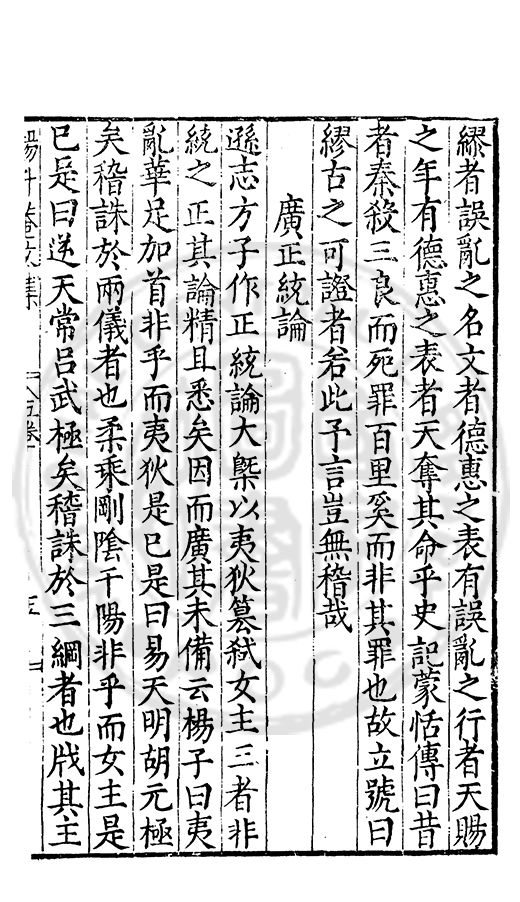 繆者誤亂之名文者德惠之表有誤亂之行者天賜
之年有德惠之表者天奪其命乎史記蒙恬傳曰昔
者秦殺三良而死罪百里奚而非其罪也故立號曰
繆古之可證者若此予言豈無稽哉
廣正統論
遜志方子作正統論大槩以夷狄篡弑女主三者非
統之正其論精且悉矣因而廣其未備云楊子曰夷
亂華足加首非乎而夷狄是已是曰易天明胡元極
矣稽誅於兩儀者也柔乘剛陰干陽非乎而女主是
已是曰逆天常呂武極矣稽誅於三綱者也戕其主